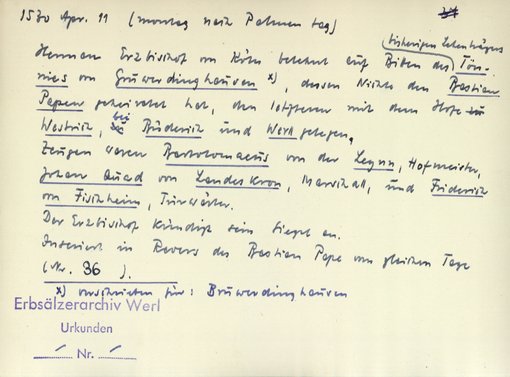 1530 Apr. 11 (Montag nach Palmentag)
bisherigen Lehnträgers
Herman Erzbischof von Köln belehnt auf Bitten des Tön-
nies von Gruwerdinghausen x), dessen Nichte den Bastian
Papen geheiratet hat, den letzteren mit dem Hofe zu
Westrich, bei Büderich und Werl gelegen.
Zeugen waren Bartolomaeus von der Leynn, Hofmeister,
Johan Quad von Landeskron, Marschall, und Friderich
von Fischheim, Türwärter.
Der Erzbischof kündigt sein Siegel an.
Inseriert in Revers des Bastian Pape vom gleichen Tage
(Nr. 36 ).
x) verschrieben für: Bruwerdinghausen
Erbsälzerarchiv Werl
Urkunden
Nr.